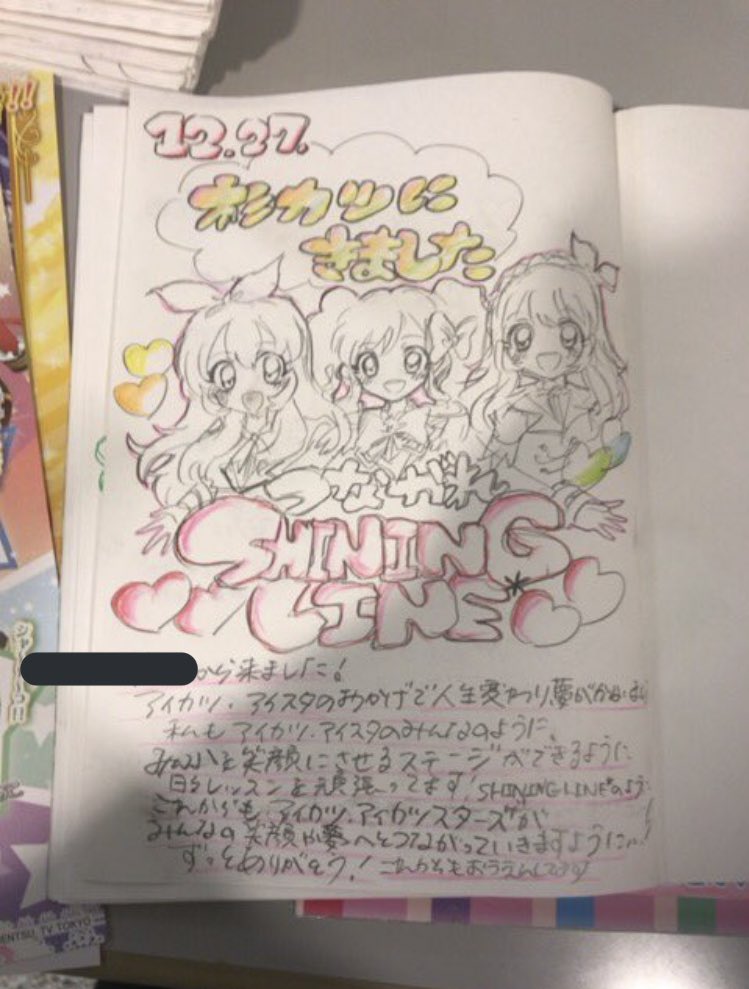 12.27.
杉カツに
きました
つながれ
SHINING
LINE*
から来ました!
アイカツ・アイスタのおかげで人生変わり、夢が
私もアイカツ・アイスタのみんなのように、
みんなを笑顔にさせるステージができるように
日々レッスンを頑張ってます!SHINING LINE*のよう
これからも、アイカツ・アイカツスターズ!が
みんなの笑顔や夢へとつながっていきますように…!
ずっとありがとう!これからもおうえんしてます
DENTSU, TV TOKYO